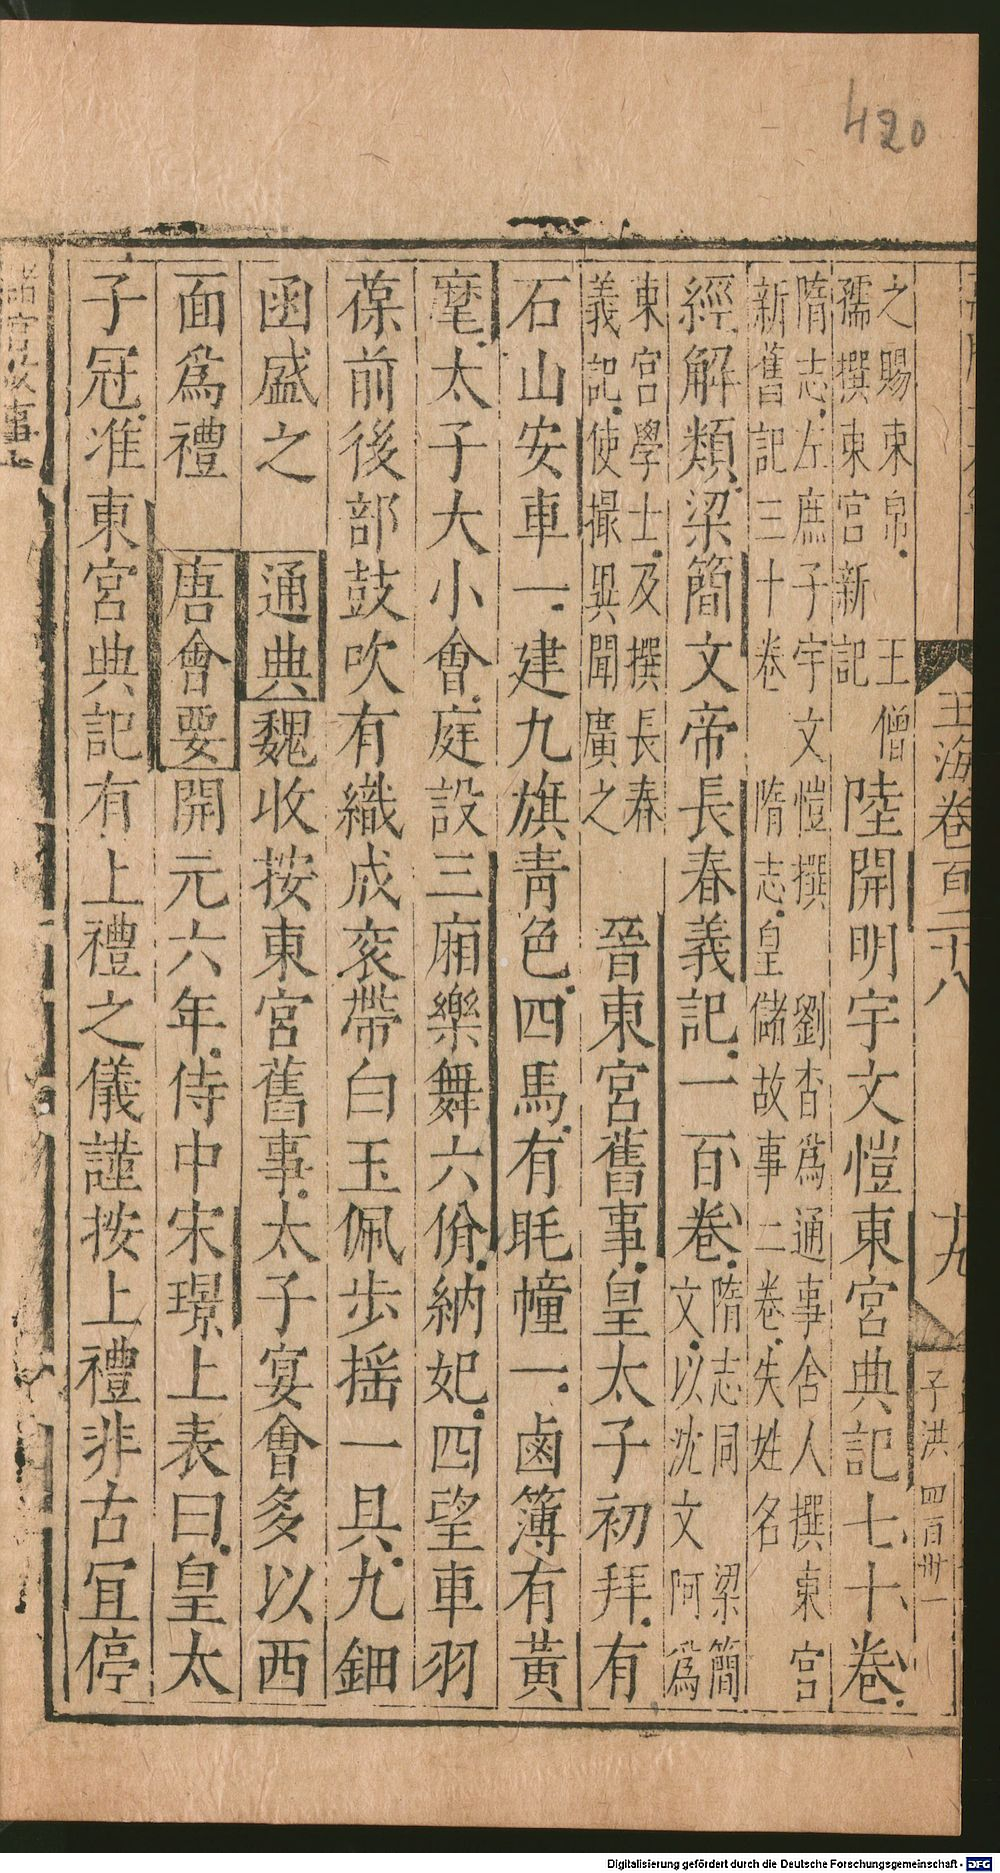 420
玉海卷百二十八
十九
子洪
四百卅一
之賜束帛 王僧
孺撰東宮新記
陸開明宇文愷東宮典記七十卷
隋志左庶子宇文愷撰 劉杳爲通事舍人撰東宮
新舊記三十卷 隋志皇儲故事二卷失姓名
經解類梁簡文帝長春義記一百卷
隋志同 梁簡
文以沈文阿爲
東宮學士及撰長春
義記使撮異聞廣之
晉東宮舊事皇太子初拜有
石山安車一建九旗青色四馬有眊幢一鹵簿有黃
麾太子大小會庭設三廂樂舞六佾納妃四望車羽
葆前後部鼓吹有織成衮帶白玉佩步搖一具九鈿
函盛之 通典魏收按東宮舊事太子宴會多以西
面爲禮 唐會要開元六年侍中宋璟上表曰皇太
子冠准東宮典記有上禮之儀謹按上禮非古宜停
Digitalisierung gefördert durch die Deutsche Forschungsgemeinschaft - DFG